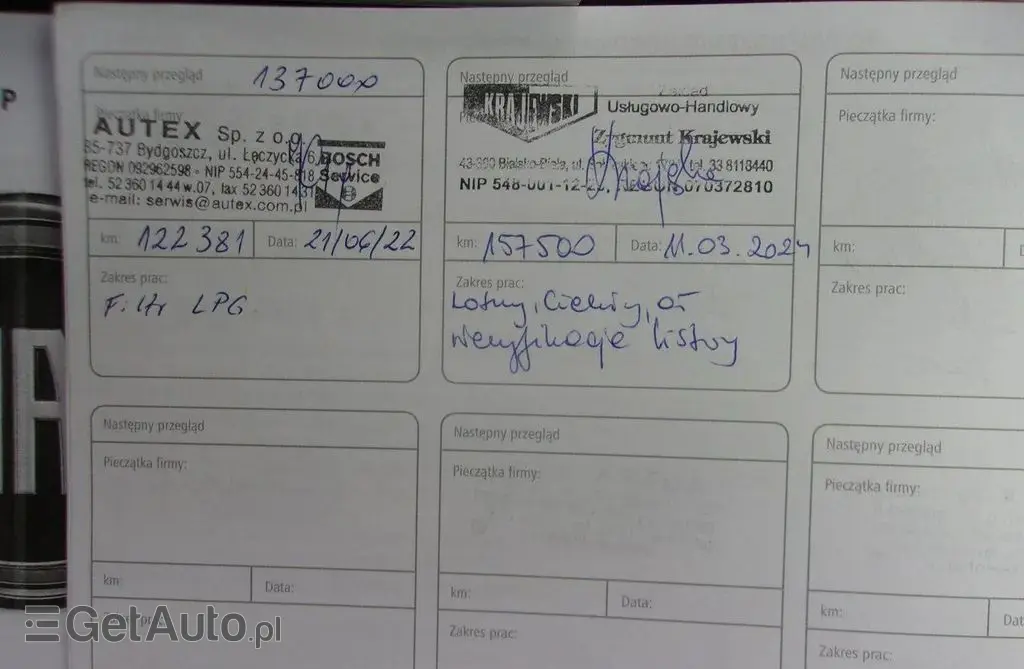 P
Następny przegląd 137000
Pieczątka firmy:
AUTEX Sp. z o.o.
85-737 Bydgoszcz, ul. Łęczycka 6,
REGON 092962598 - NIP 554-24-45-818
tel. 52 360 14 44 w.07, fax 52 360 14 31
e-mail: serwis@autex.com.pl
BOSCH
Service
km: 122 381 Data: 21/06/22
Zakres prac:
Filtr LPG
Następny przegląd
KRAJEWSKI
Zakład
Usługowo-Handlowy
Zygmunt Krajewski
43-300 Bielsko-Biała, ul. tel. 33 8118440
NIP 548-001-12-22, REGON 070372810
km: 157500 Data: 11.03.2024
Zakres prac:
Weryfikacje listwy
Następny przegląd
Pieczątka firmy:
km:
Zakres prac:
Następny przegląd
Pieczątka firmy:
km: Data:
Następny przegląd
Pieczątka firmy:
km: Data:
Zakres prac:
Następny przegląd
Pieczątka firmy:
km: Dat
Zakres prac:
GetAuto.pl